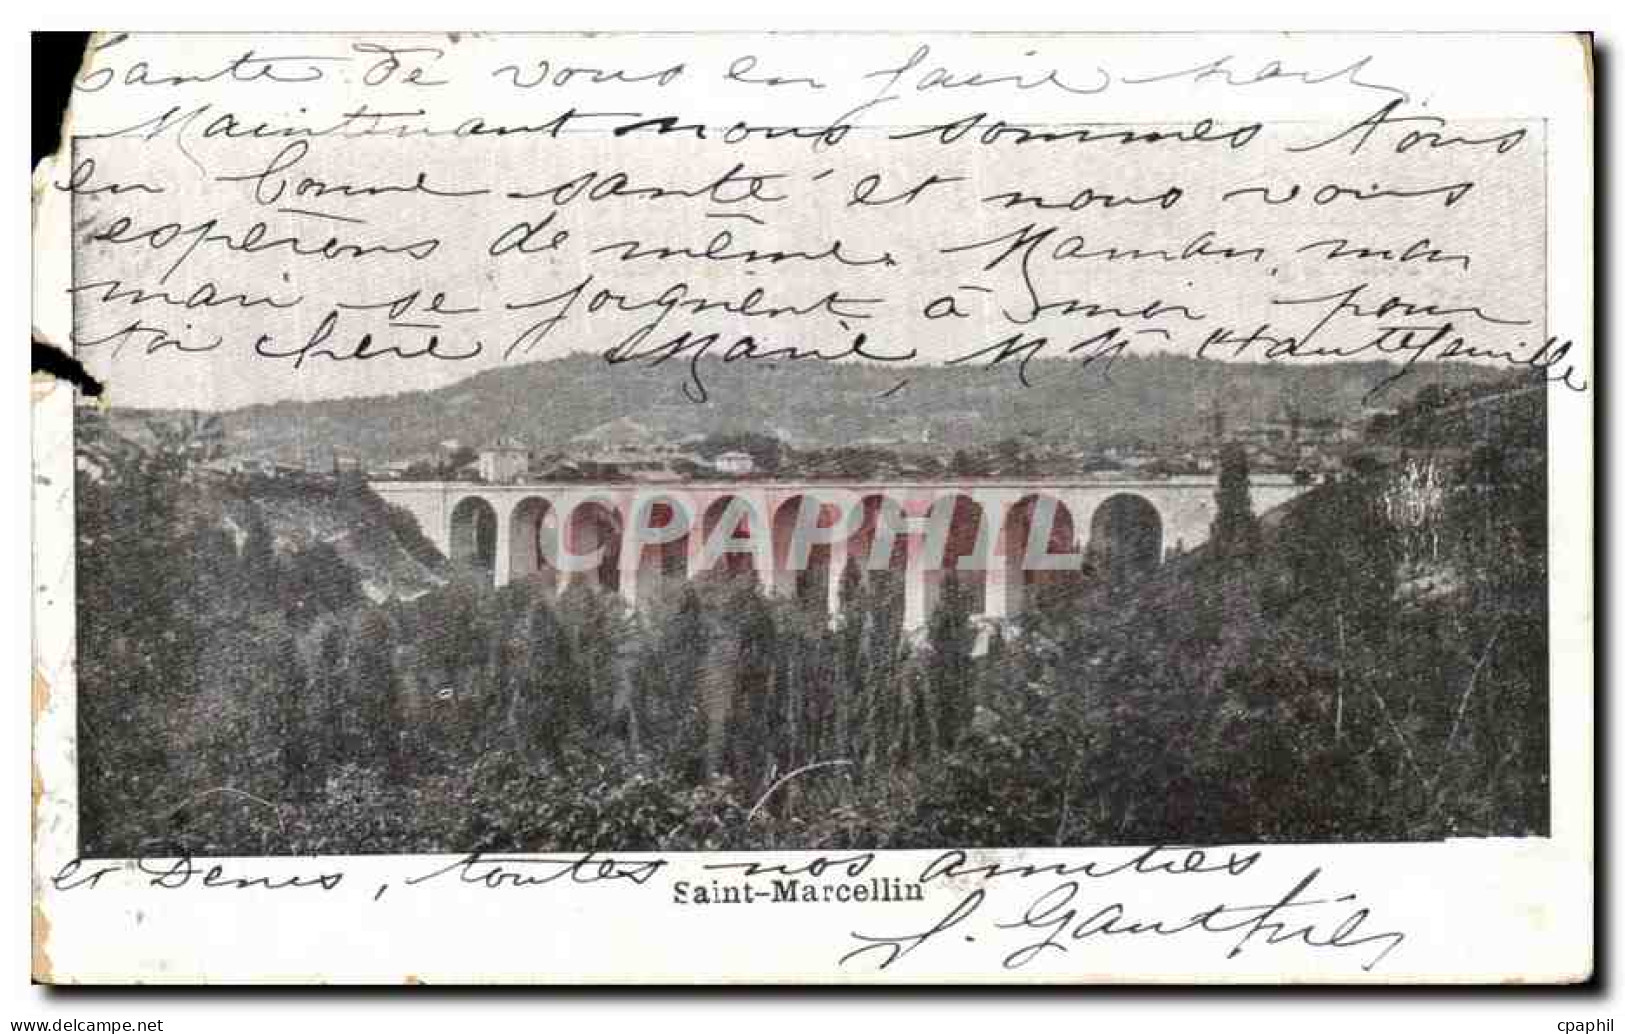 santé de vous en faire part
Maintenant nous sommes tous
en bonne santé et nous vous
espérons de même. Maman, mon
mari se joignent à moi pour
toi chère Marie, M Mme Hautefeuille
CPAPHIL
et Denis, toutes nos amitiés
Saint-Marcellin
S. Gauthier
www.cpaphil.com
© cpaphil